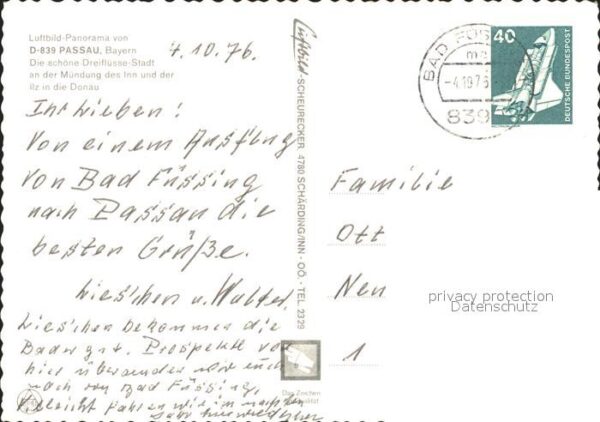 Luftbild-Panorama von
D-839 PASSAU, Bayern
Die schöne Dreiflüsse-Stadt
an der Mündung des Inn und der
Ilz in die Donau
4.10.76.
Ihr Lieben!
Von einem Ausflug
von Bad Füssing
nach Passau die
besten Grüße.
Lieschen u. Walter.
Lieschen bekommen die
Bäder gut. Prospekte von
hier übersenden wir euch
nach von Bad Füssing,
Vielleicht fahren wir im nächsten
Jahr hier wieder
Luftbild-SCHEURECKER 4780 SCHÄRDING/INN - OÖ. - TEL. 2329
Das Zeichen
BAD FÜSS
-4.10.76
839
40
DEUTSCHE BUNDESPOST
Familie
Ott
Neu
1
privacy protection
Datenschutz